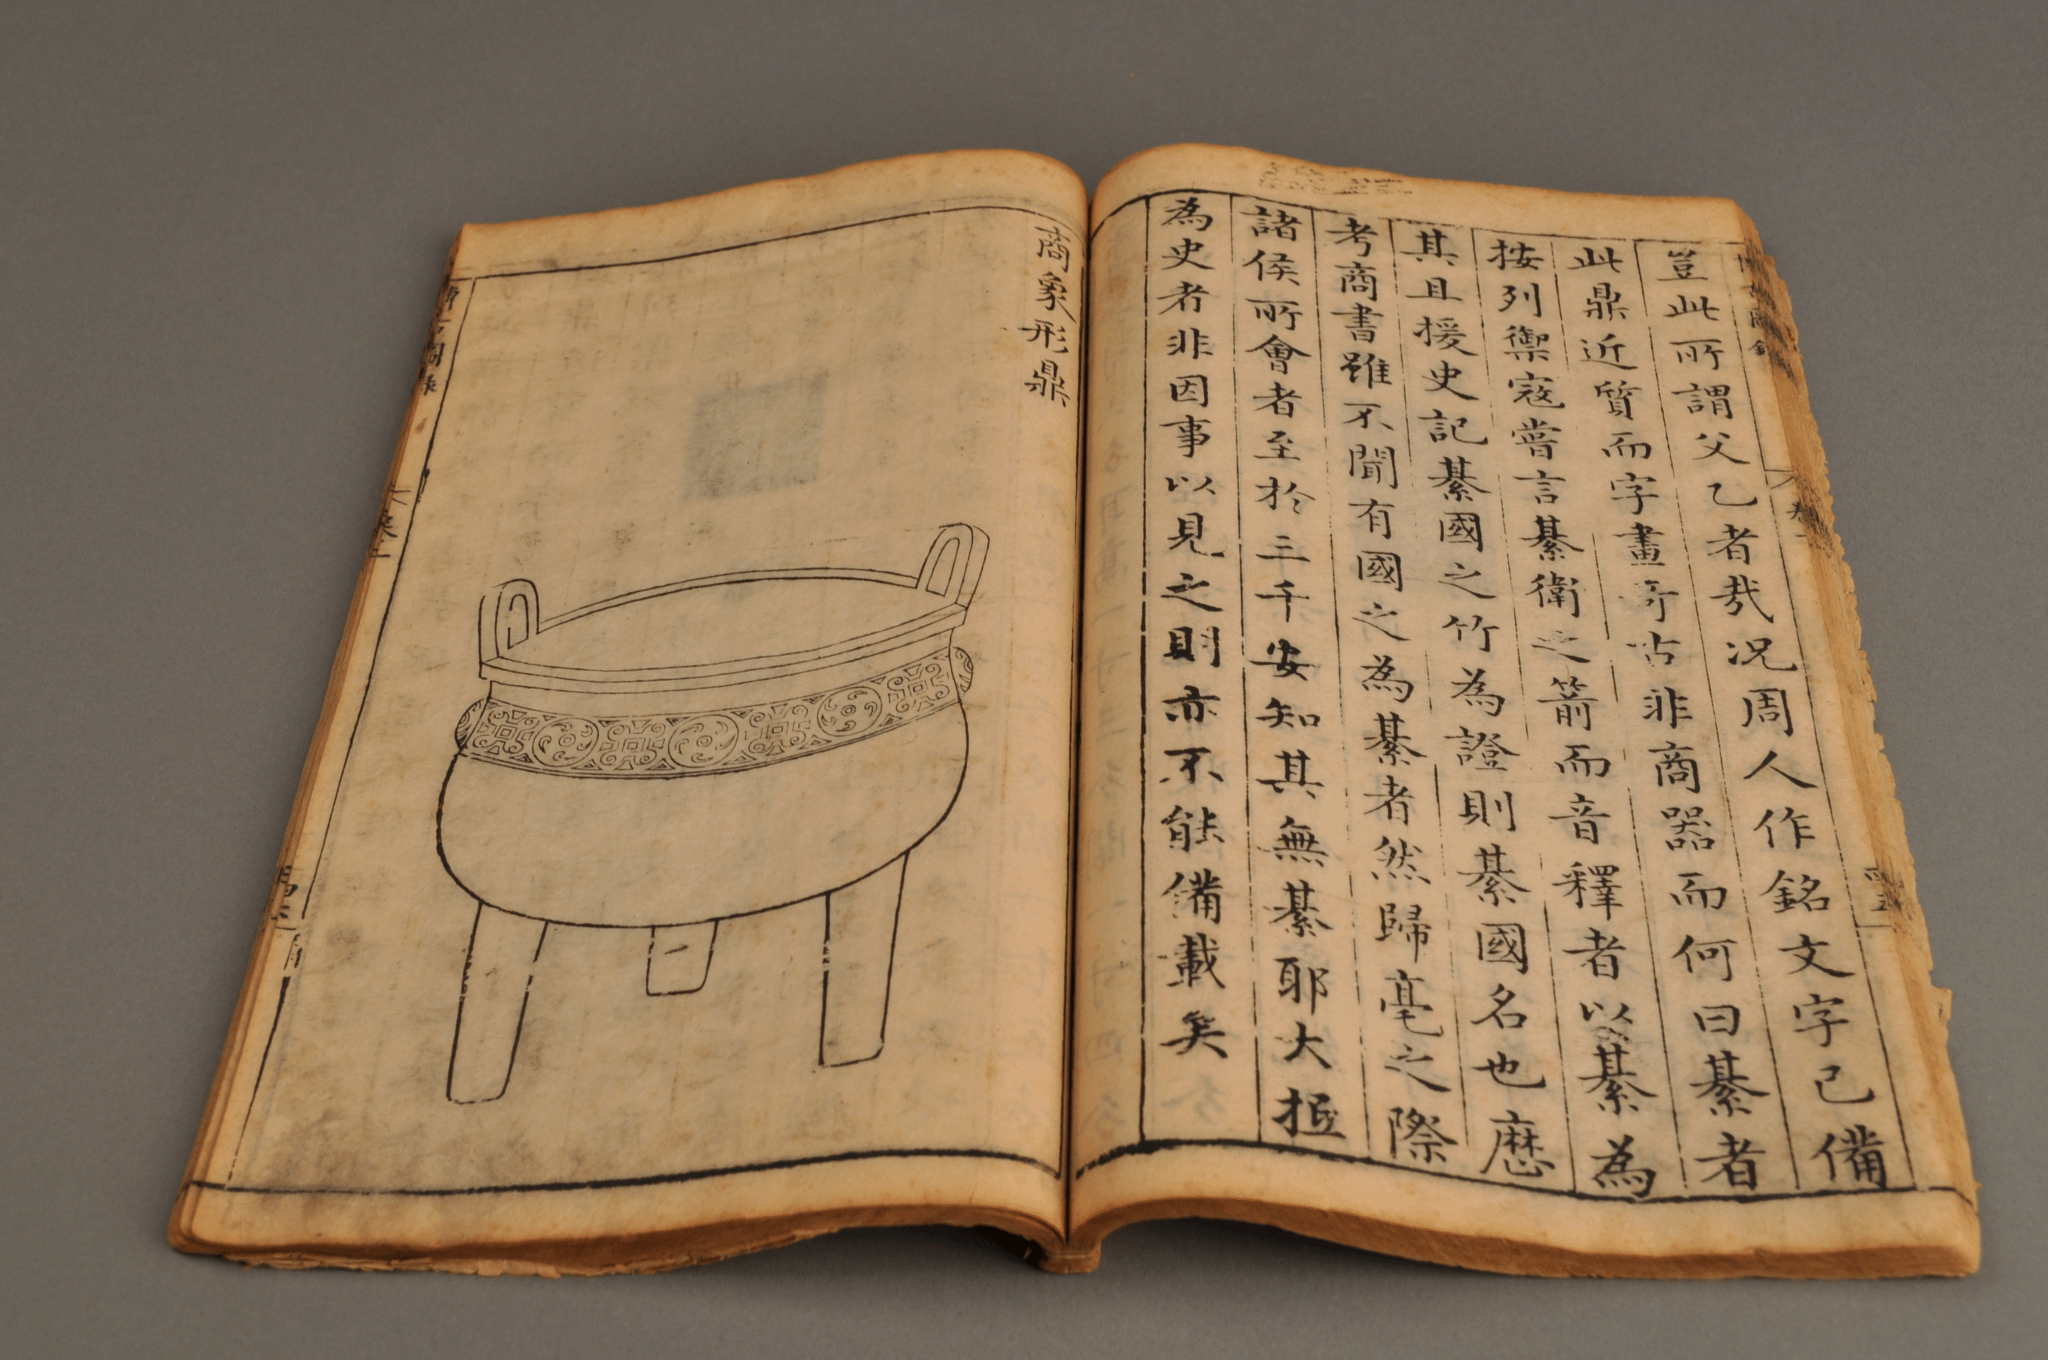 豈此所謂父乙者哉况周人作銘文字已備
此鼎近質而字畫奇古非商器而何曰綦者
按列禦寇嘗言綦衛之箭而音釋者以綦為
其且援史記綦國之竹為證則綦國名也歷
考商書雖不聞有國之為綦者然歸亳之際
諸侯所會者至於三千安知其無綦耶大抵
為史者非因事以見之則亦不能備載矣
商象形鼎